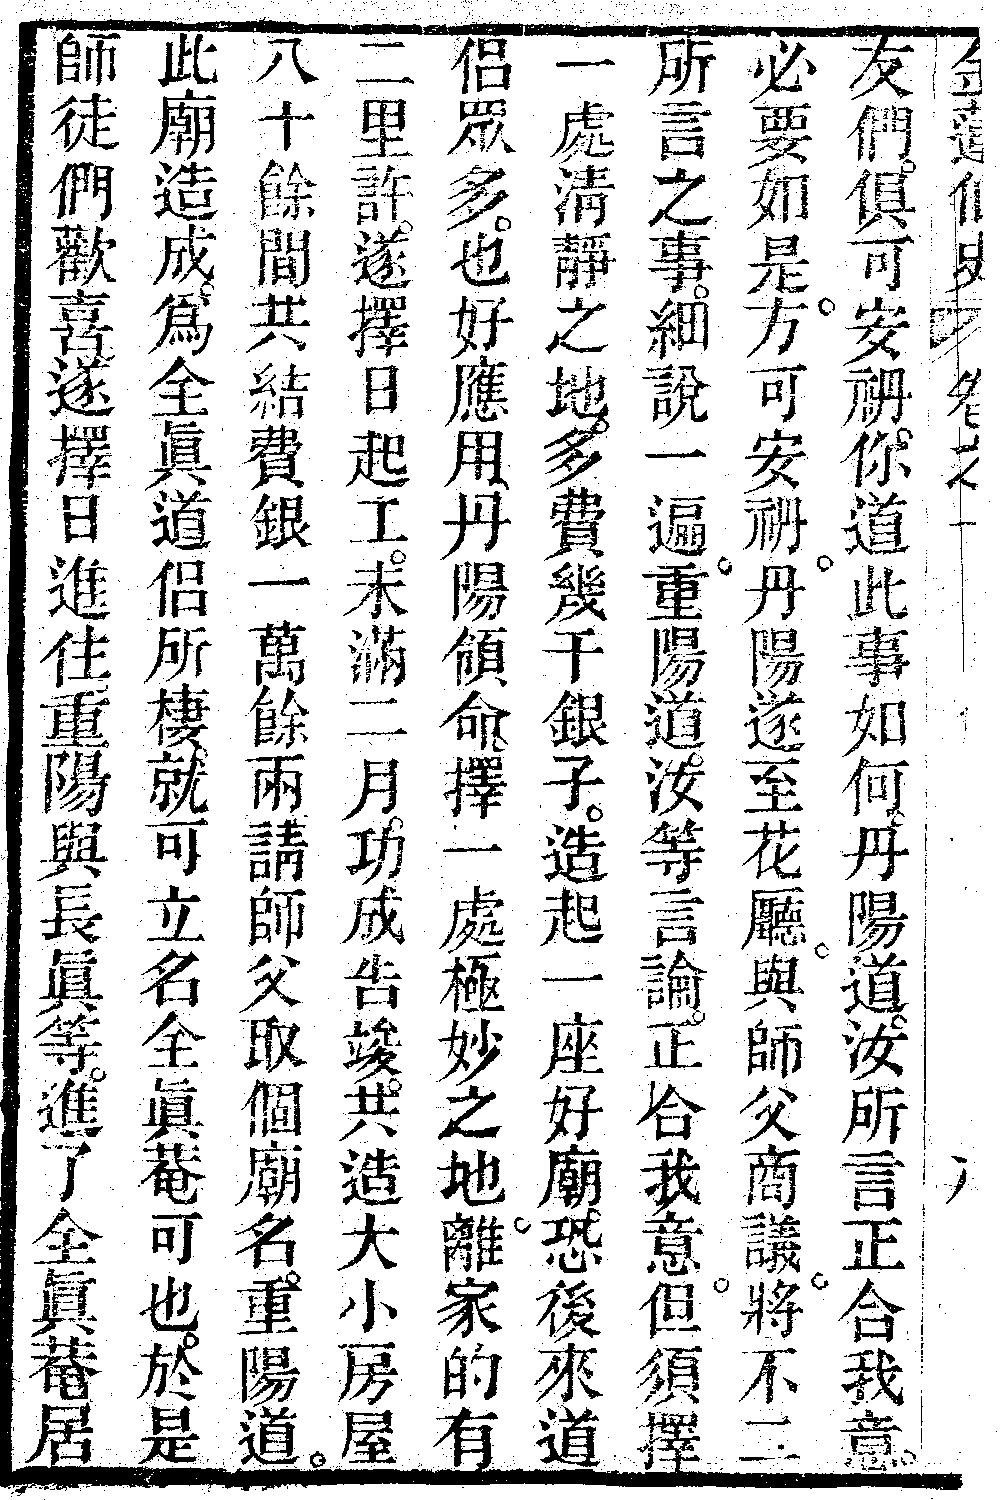 金蓮仙史 卷之一 八
友們。俱可安礽。你道此事如何。丹陽道。汝所言正合我意。
必要如是。方可安礽。丹陽遂至花廳。與師父商議。將不二
所言之事。細說一遍。重陽道。汝等言論。正合我意。但須擇
一處淸靜之地。多費幾千銀子。造起一座好廟。恐後來道
侶眾多。也好應用。丹陽領命。擇一處極妙之地。離家的有
二里許。遂擇日起工。未滿二月。功成告竣。共造大小房屋
八十餘間。共結費銀一萬餘兩。請師父取個廟名。重陽道。
此廟造成。爲全眞道侶所棲。就可立名全眞菴可也。於是
師徒們歡喜。遂擇日進住。重陽與長眞等。進了全眞菴居